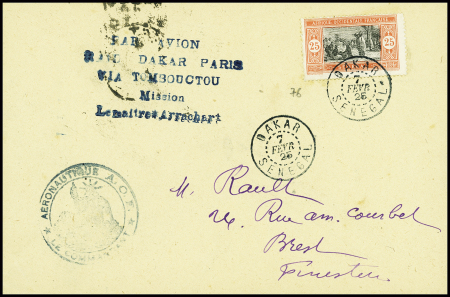 PAR AVION
RAID DAKAR PARIS
VIA TOMBOUCTOU
Mission
Lemaitre & Arrachart
AFRIQUE OCCIDENTALE FRANÇAISE
25
25
DAKAR
7
FEVR
25
SENEGAL
76
DAKAR
7
FEVR
25
SENEGAL
AÉRONAUTIQUE A.O.F.
LE COMMANDANT
M. Rault
24 Rue am. Courbet
Brest
Finistère